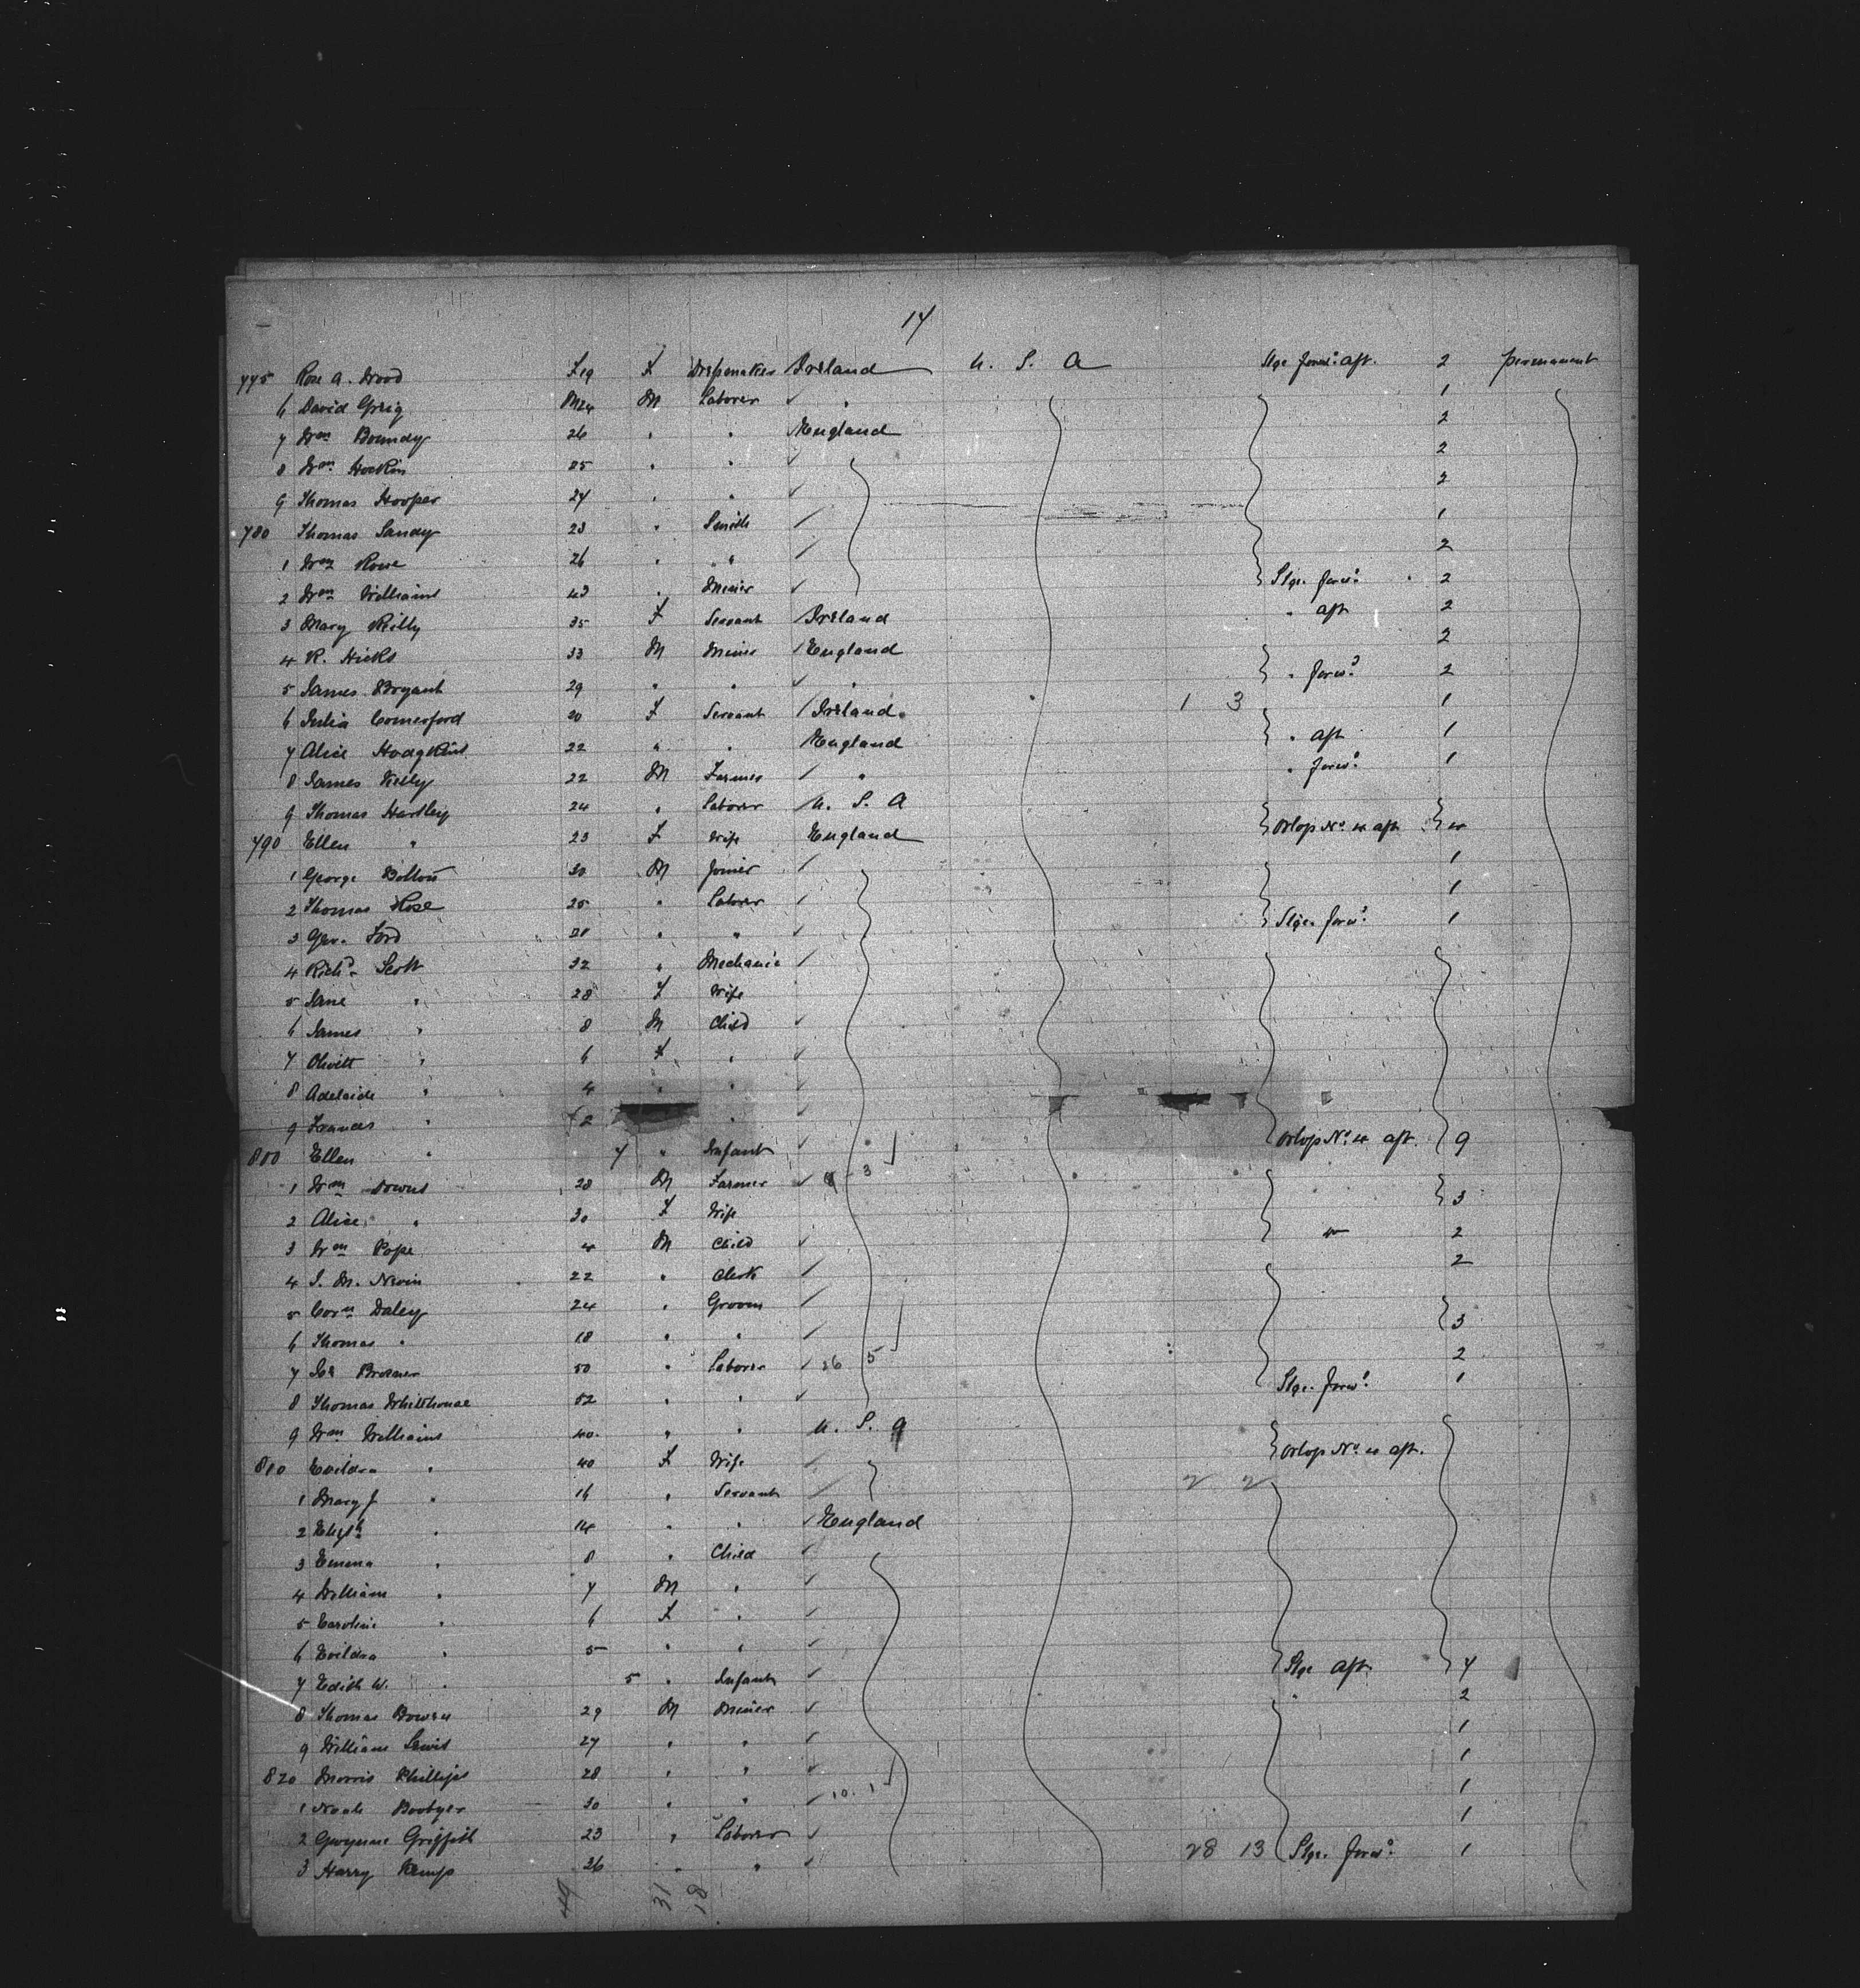 14
775 Rose A. Wood F 19 F Dressmaker Ireland U. S. A Stge forwd aft. 2 permanent
6 David Greig M 24 M Laborer ✓ " 1
7 Wm Boundy 26 " " England 2
8 Wm Hockin 25 " " ✓ 2
9 Thomas Hooper 24 " " ✓ 2
780 Thomas Sandy 23 " Smith / 1
1 Wm Rowe 26 " " / 2
2 Wm Williams 43 " Miner ✓ Stge. forwd 2
3 Mary Reilly 35 F Servant / Ireland " aft 2
4 R. Hicks 33 M Miner / England 2
5 James Bryant 29 " " ✓ " " forwd 2
6 Julia Comerford 20 F Servant / Ireland 1 3 1
7 Alice Hodgkins 22 " " England " aft 1
8 James Kelly 22 M Farmer / " " forwd 1
9 Thomas Hartley 24 " Laborer / U. S. A
790 Ellen " 23 F Wife England Orlop No 4 aft 4
1 George Bolton 30 M Joiner / 1
2 Thomas Hose 25 " Laborer / 1
3 Geo. Ford 21 " " ✓ Stge. forwd 1
4 Richd Scott 32 " Mechanic /
5 Jane " 28 F Wife
6 James " 8 M Child ✓
7 " 6 F " ✓
8 Adelaide " 4 " " ✓
9 Frances " 2 " ✓
800 Ellen " 7 " Infant ✓ Orlop No 4 aft. 9
1 Wm Downs 28 M Farmer ✓ 3
2 Alice " 30 F Wife 3
3 Wm Pope 4 M Child ✓ 4 2
4 J. M. Nevin 22 " Clerk / 2
5 Corns Daley 24 " Groom /
6 Thomas " 18 " " / 3
7 50 " Laborer ✓ 26 5 2
8 Thomas Whitehouse 52 " " ✓ Stge. forwd 1
9 Wm Williams 40 " " U. S. A
810 " 40 F Wife / Orlop No 4 aft.
1 Mary J " 16 " Servant / 2 2
2 Elizth " 14 " " / England
3 Emma " 8 " Child ✓
4 William " 7 M " ✓
5 Caroline " 6 F " ✓
6 " 5 " " ✓
7 Edith W. " 5 " Infant ✓ Stge aft. 7
8 Thomas Bowen 29 M Miner ✓ " 2
9 William Lewis 27 " " ✓ 1
820 Morris Phillips 28 " " ✓ 1
1 Noah 30 " " ✓ 10. 1 1
2 Gwynne Griffith 23 " Laborer ✓ 1
3 Harry Kemp 26 " " ✓ 28 13 Stge. forwd 1
31 18